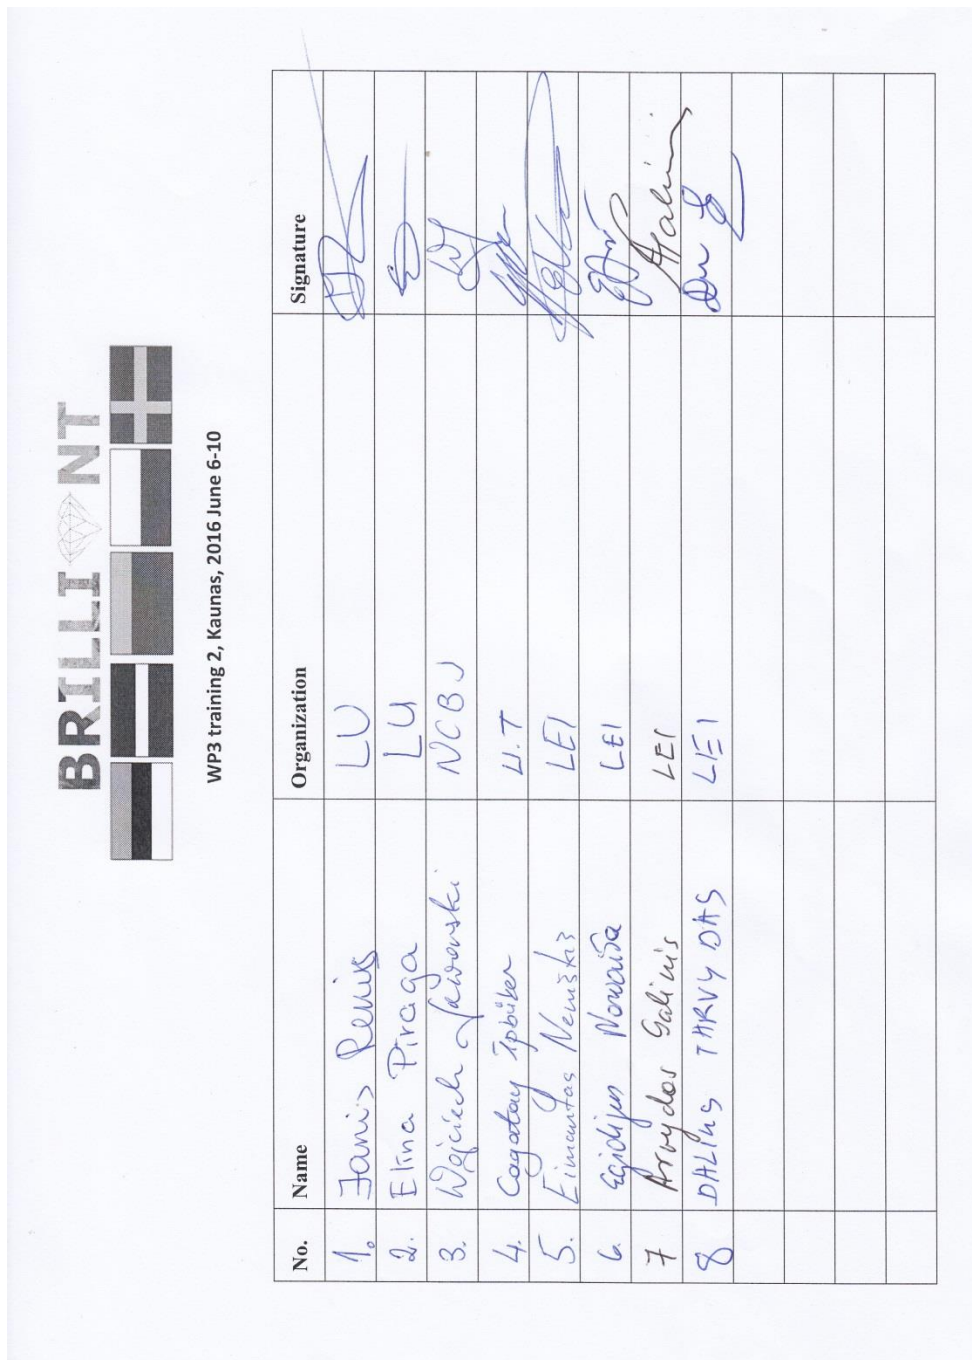 BRILLIANT
WP3 training 2, Kaunas, 2016 June 6-10
No. Name Organization Signature
1. Janis Reņiķis LU
2. Elina Piraga LU
3. Wojciech NCBJ
4. Cagatay Ipbüker U.T
5. Eimantas Neniškis LEI
6. Egidijus Norvaiša LEI
7 Arvydas Galinis LEI
8 DALIUS TARVYDAS LEI